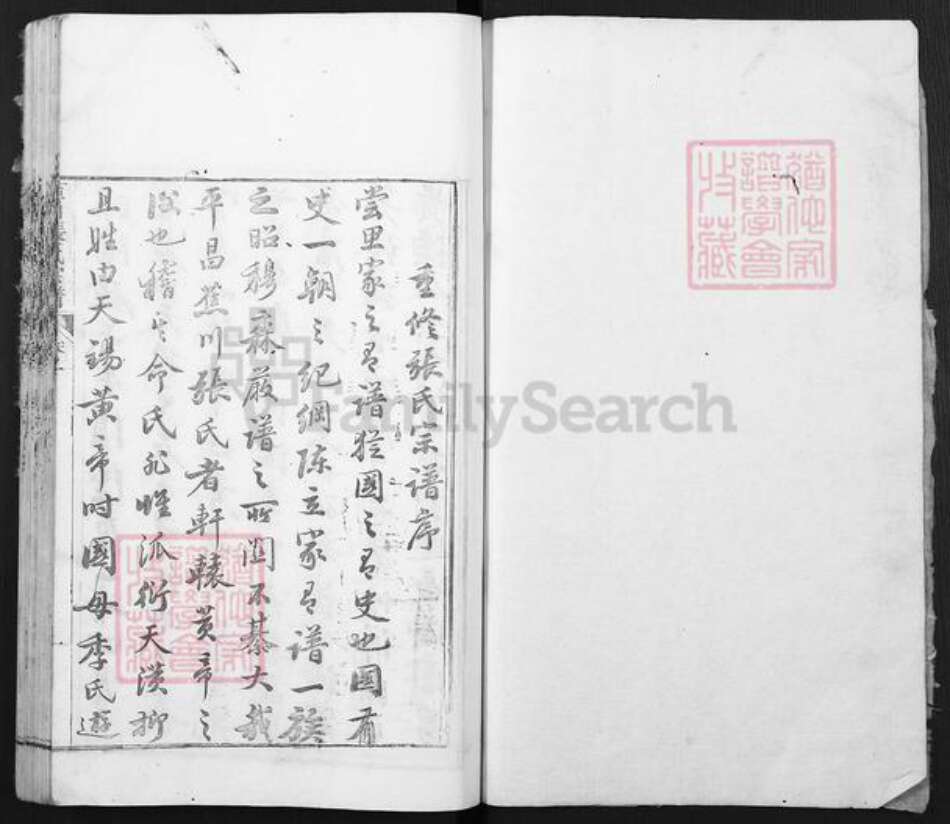 猶他家
譜學會
收藏
重修張氏宗譜序
嘗思家之有譜猶國之有史也國有
史一朝之紀綱陳立家有譜一族
之昭穆森嚴譜之所關不綦大哉
平昌蕉川張氏者軒轅黃帝之
也稽其命氏非惟派衍天潢抑
且姓由天錫黃帝時國母季氏遊
猶他家
譜學會
收藏
FamilySearch